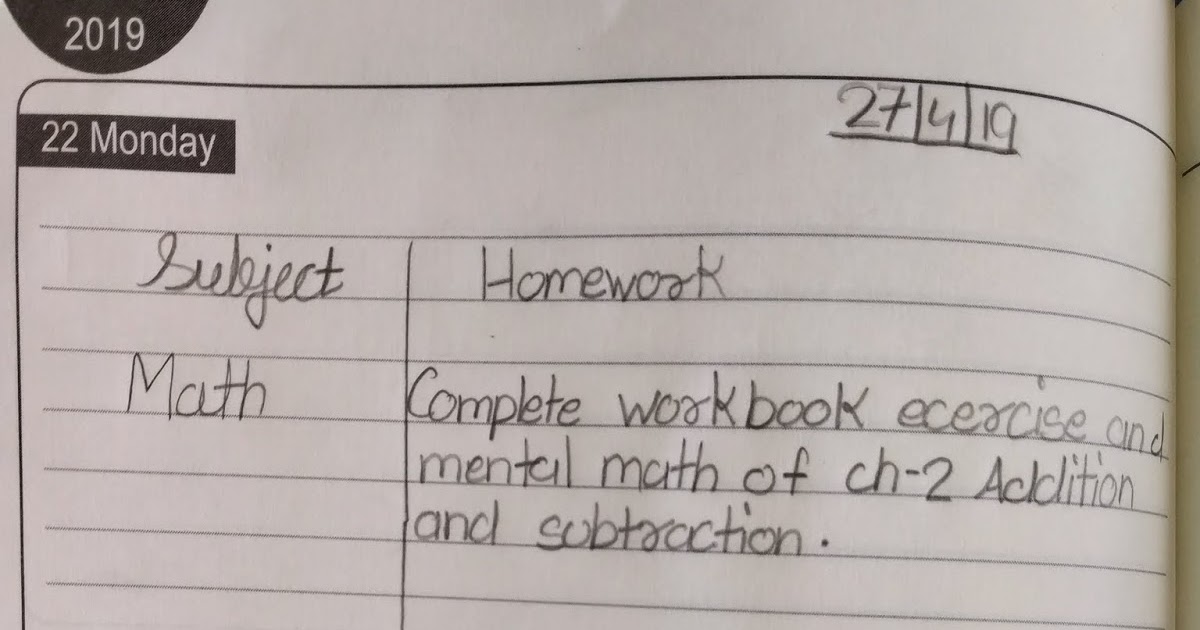 2019
22 Monday
27/4/19
Subject Homework
Math Complete workbook ecercise and
mental math of ch-2 Addition
and subtraction.